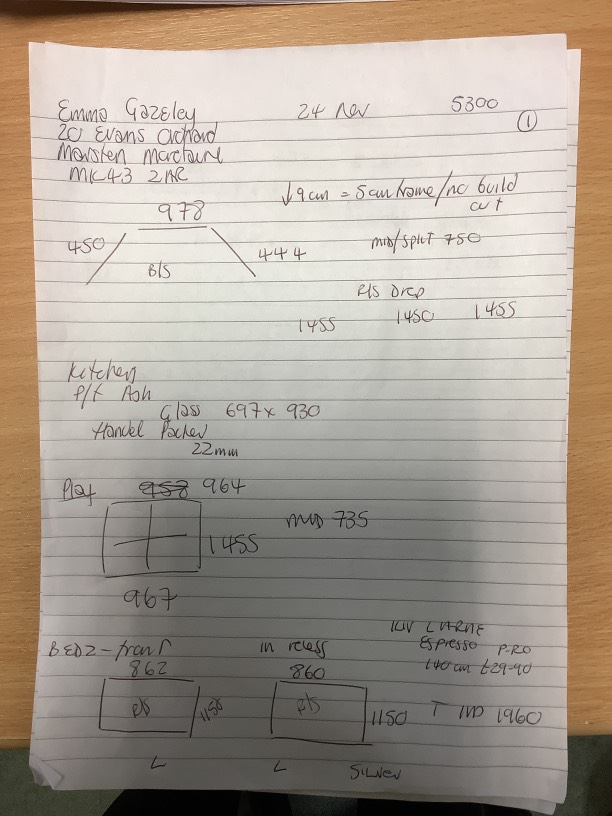 Emma Gazeley 24 Nov 5300 ①
20 Evans Orchard
Marsten Marctaine
MK43 2AR
978 ↓9cm = 5cm frame/no build out
450 444 mid/split 750
B/S
F/S Drop
1455 1450 1455
Kitchen
P/F Ash
Glass 697 x 930
Handel Packer
22mm
Play 958 964
1455 mid 735
967
BED2 - front in recess ESPRESSO P-RO
862 860 140cm £29-90
1150 1150 T 1960
L L Silver